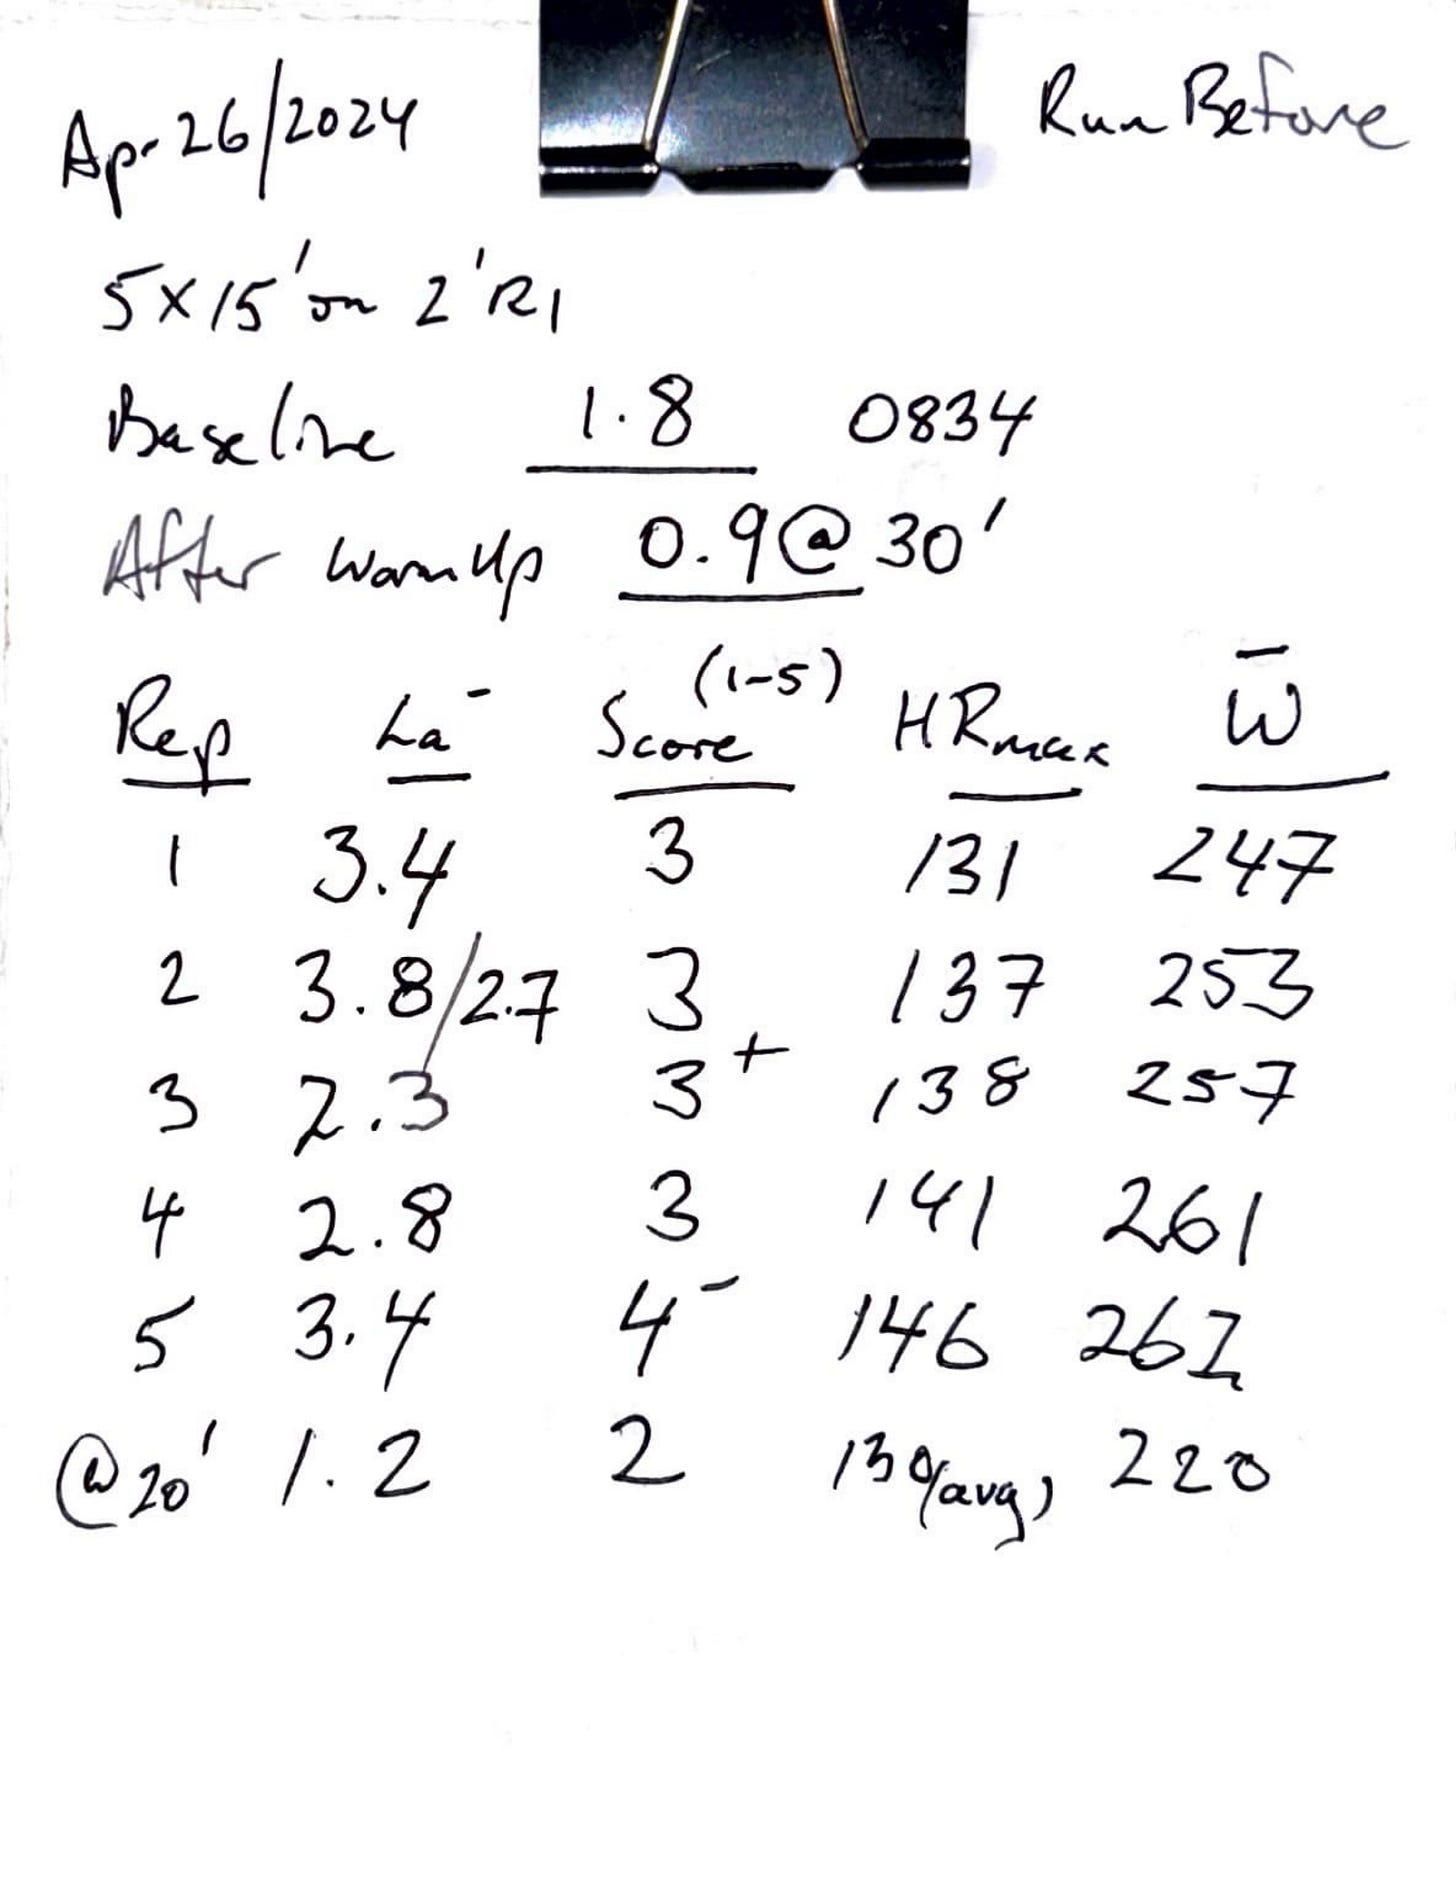 Apr 26/2024 Run Before
5x15' on 2' RI
Baseline 1.8 0834
After Warm Up 0.9@ 30'
(1-5)
Rep La⁻ Score HRmax W̄
1 3.4 3 131 247
2 3.8/2.7 3 137 253
3 2.3 3+ 138 257
4 2.8 3 141 261
5 3.4 4- 146 262
@20' 1.2 2 130(avg) 220